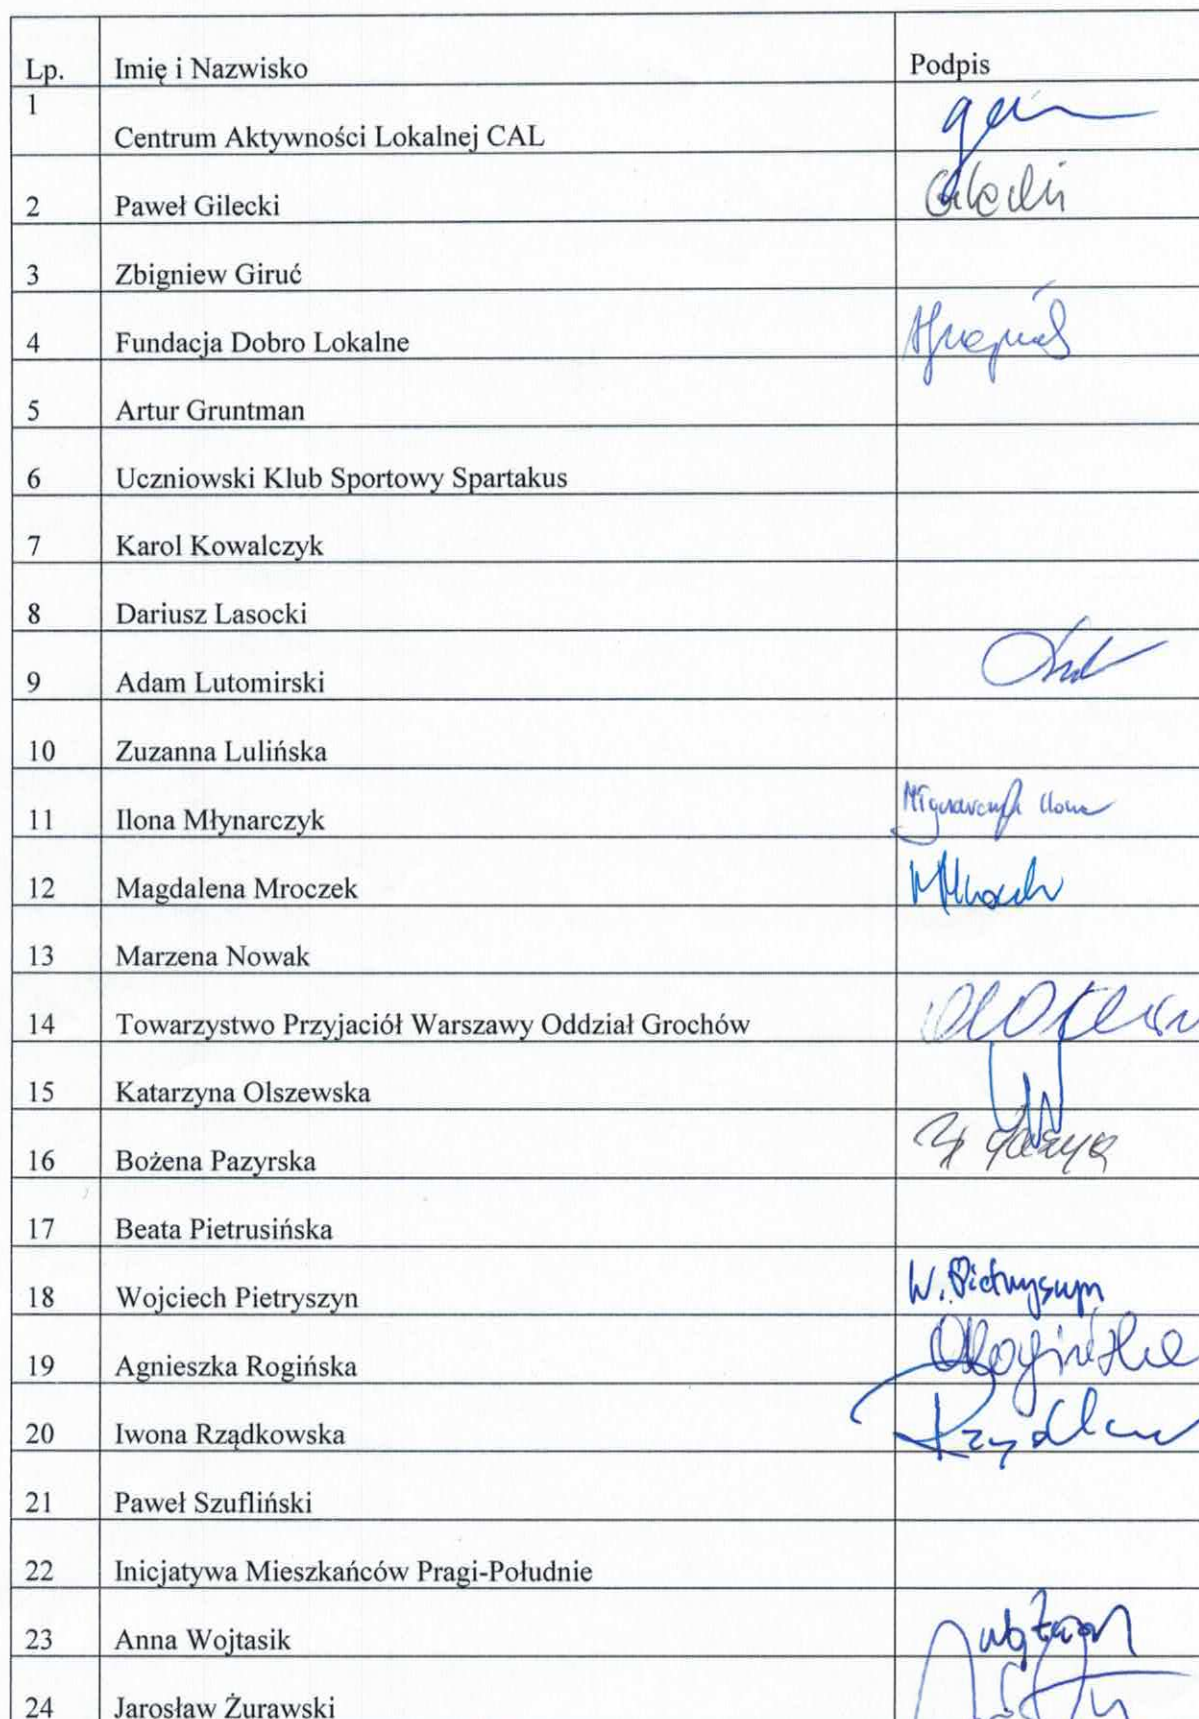 Lp. Imię i Nazwisko Podpis
1 Centrum Aktywności Lokalnej CAL
2 Paweł Gilecki
3 Zbigniew Giruć
4 Fundacja Dobro Lokalne
5 Artur Gruntman
6 Uczniowski Klub Sportowy Spartakus
7 Karol Kowalczyk
8 Dariusz Lasocki
9 Adam Lutomirski
10 Zuzanna Lulińska
11 Ilona Młynarczyk Młynarczyk Ilona
12 Magdalena Mroczek
13 Marzena Nowak
14 Towarzystwo Przyjaciół Warszawy Oddział Grochów
15 Katarzyna Olszewska
16 Bożena Pazyrska
17 Beata Pietrusińska
18 Wojciech Pietryszyn W. Pietryszyn
19 Agnieszka Rogińska
20 Iwona Rządkowska
21 Paweł Szufliński
22 Inicjatywa Mieszkańców Pragi-Południe
23 Anna Wojtasik
24 Jarosław Żurawski